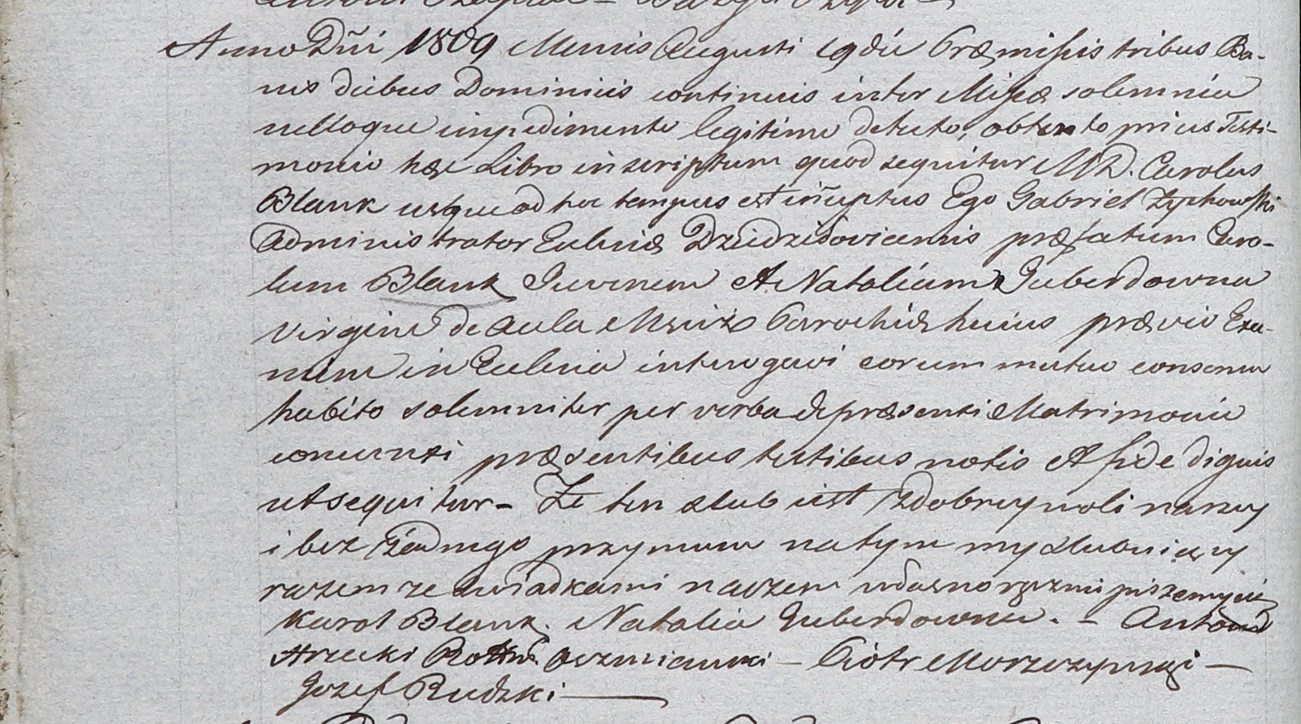 Anno Dni 1809 Mensis Augusti 19 die Præmissis tribus Ba-
nis diebus Dominicis continuis inter Missæ solemnia
nulloque impedimento legitimo detecto, obtento prius Testi-
monio hæc Libro inscriptum quod sequitur MD. Carolus
Blank usque ad hoc tempus est inuptus Ego Gabriel Zychowski
Administrator Ecliæ præfatum Caro-
lum Blank Juvenem et Nataliam Guberdowna
Virgine de Aula Parochiæ huius prævio Exa-
mine in Eclesia interogavi eorum mutuo consensu
habito solemniter per verba de præsenti Matrimonio
coniunxi præsentibus testibus notis et fide dignis
ut sequitur - Że ten slub iest z dobrey woli naszey
i bez żadnego przymusu na tym my slubuiący
razem ze swiadkami naszemi własnoręcznie piszemy się
Karol Blank. Natalia Guberdowna. - Antoni
- Piotr
Jozef Rudzki